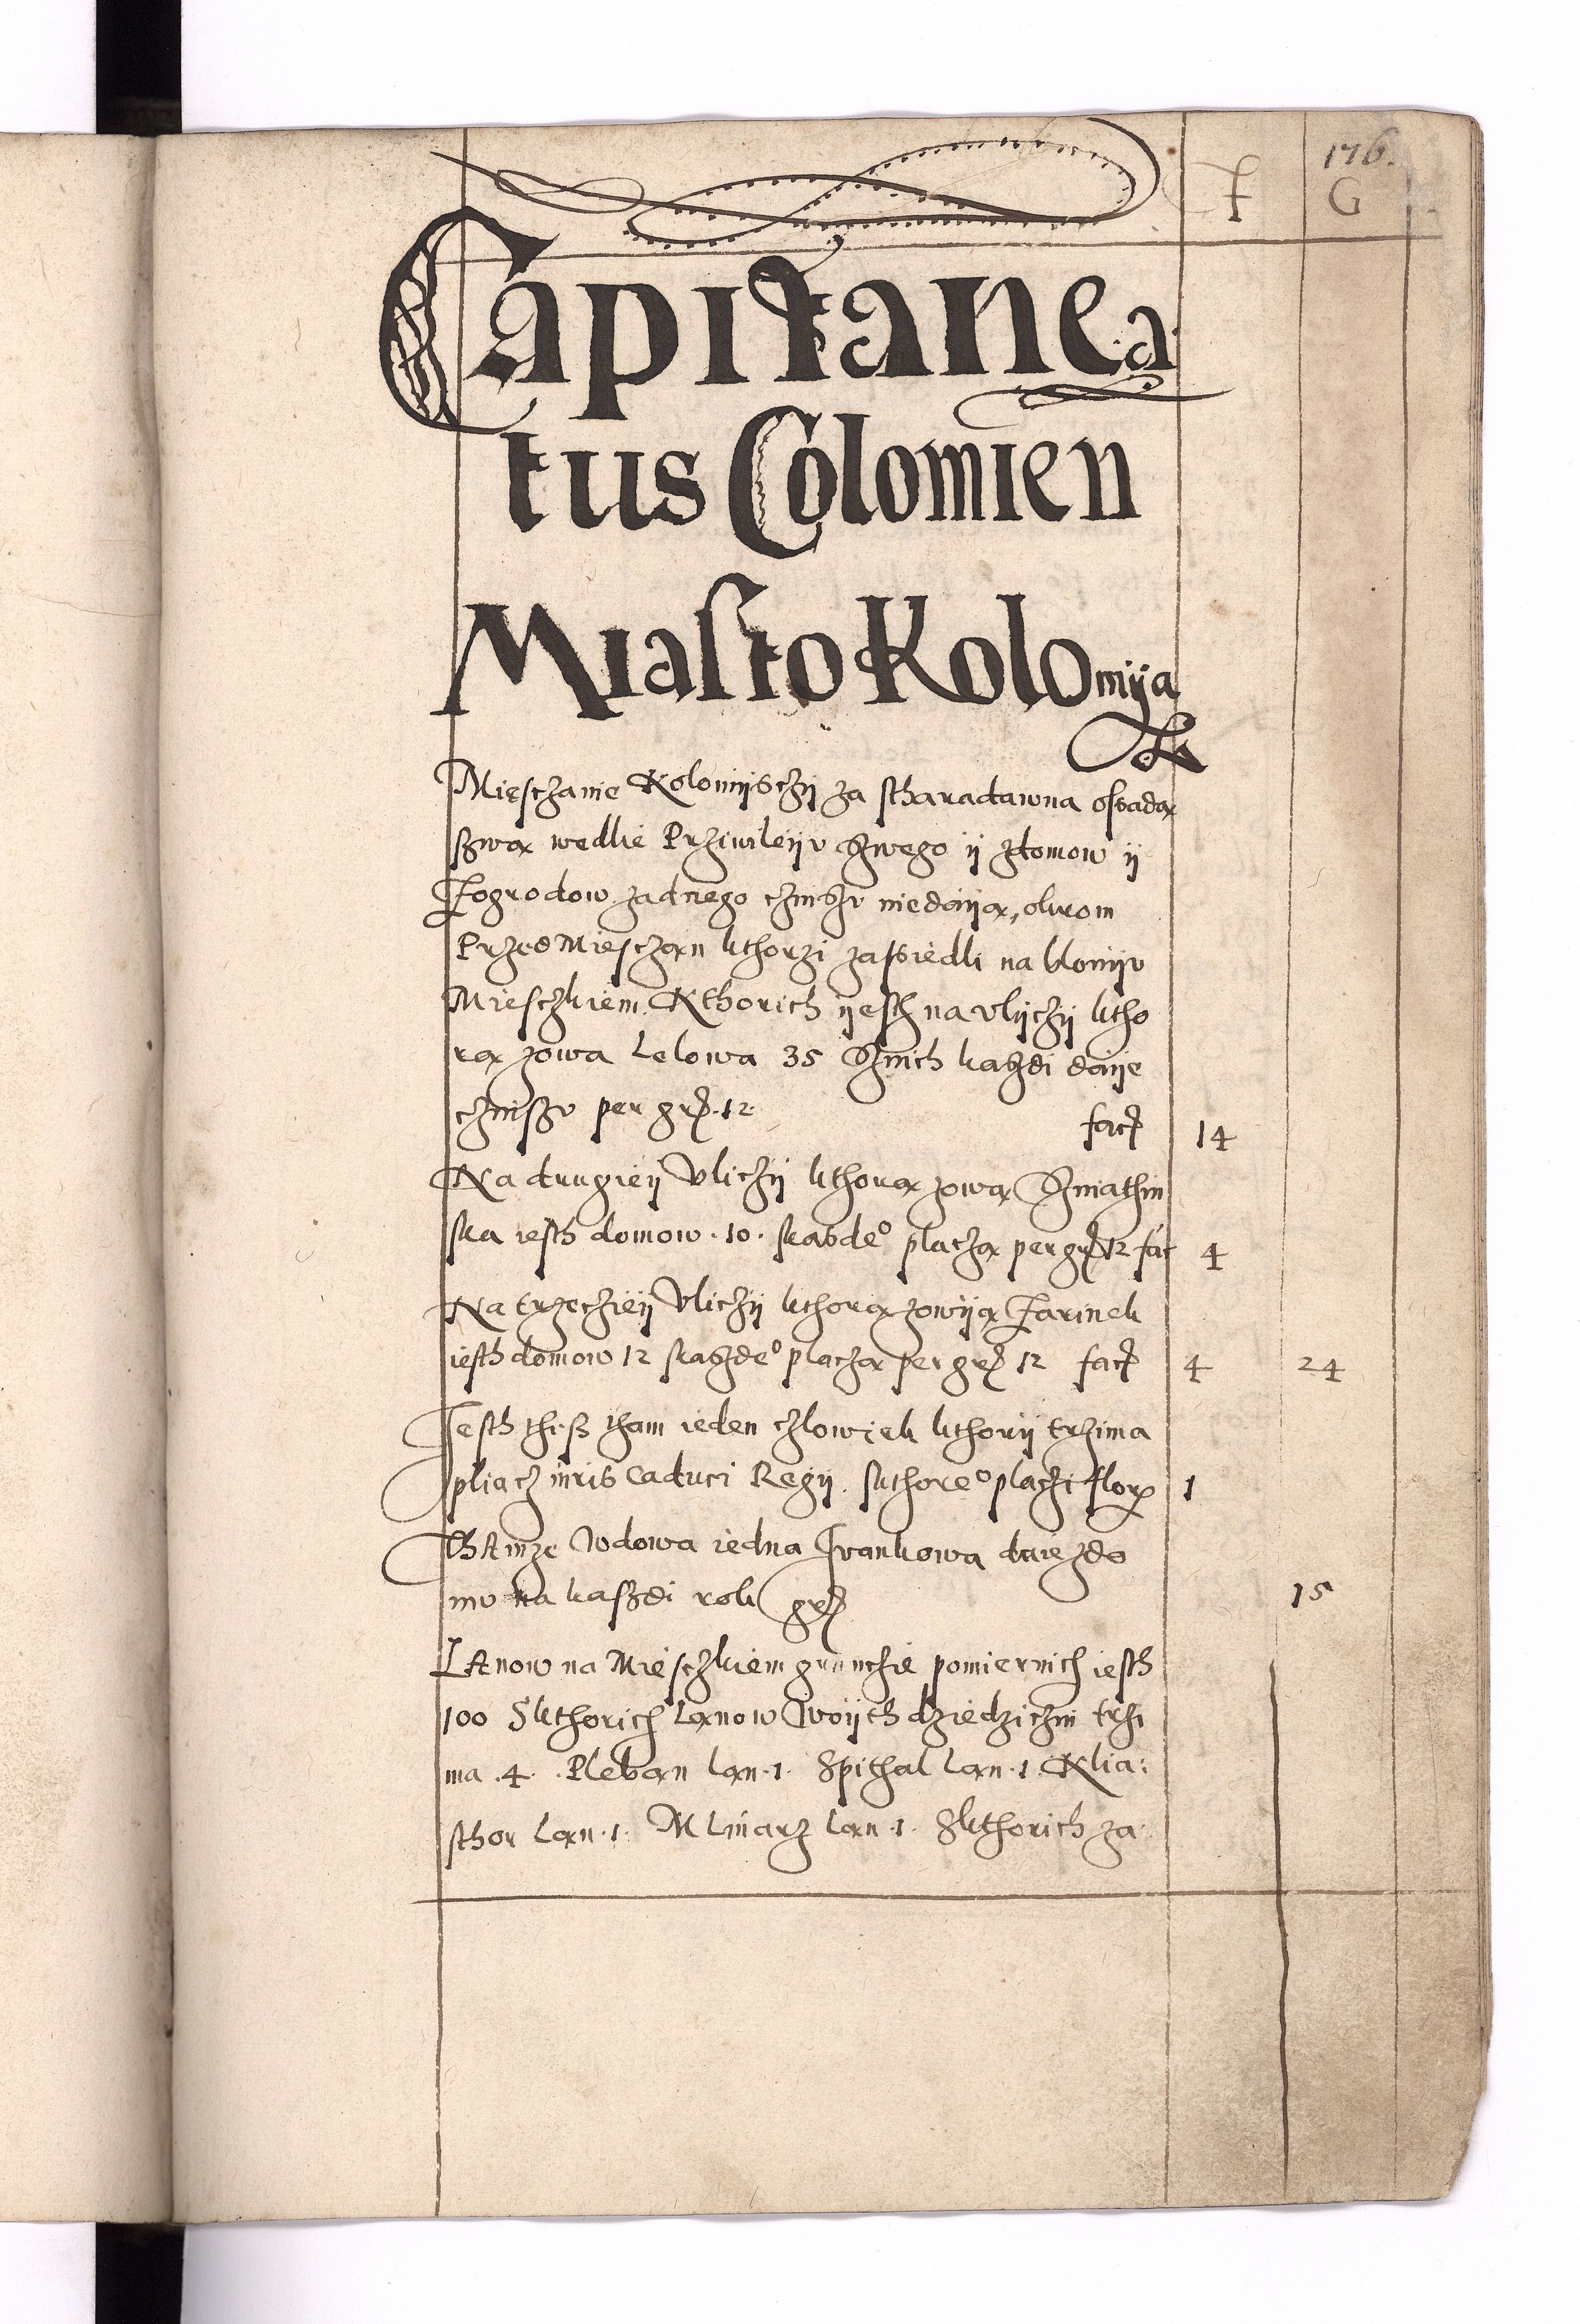 176.
F G
Capitanea
tus Colomien
Miasto Kolomija
Miesczanie Kolomijsczÿ za stharadawna osoada
szwą wedlie Prziwileÿv Szwego ÿ zdomow ÿ
Zogrodow zadnego czinszv niedaÿą, okrom
Przed Miesczan kthorzi zassiedli na bloniÿv
Miesczkiem. Kthorich ÿesth na vlÿczÿ ktho
rą zowa Lelowa 35 Sznich kazdi daÿe
czinszv per grß. 12. facß 14
Na drugieÿ Vliczÿ kthorą zową Szniathin
ska iesth domow. 10. skasdeº placzą per grß 12 fac 4
Na trzeczieÿ Vliczÿ kthorą zowÿą Zarinek
iesth domow 12 skazdeº placzą per grß 12 facß 4 24
Jesth thesz tham ieden czlowiek kthorÿ trzima
pliacz iuris Caduci Regÿ. skthoreº placzi flor 1
Thamze Wdowa iedna Ivankowa daie zdo
mv na kaszdi rok grß 15
Lanow na Miesczkiem grunczie pomiernich iesth
100 Skthorich Lanow Woÿth dziedziczni trzi
ma .4. Pleban lan .1. Spithal lan .1. Klia:
sthor lan .1. Mlinarz lan .1. Skthorich za